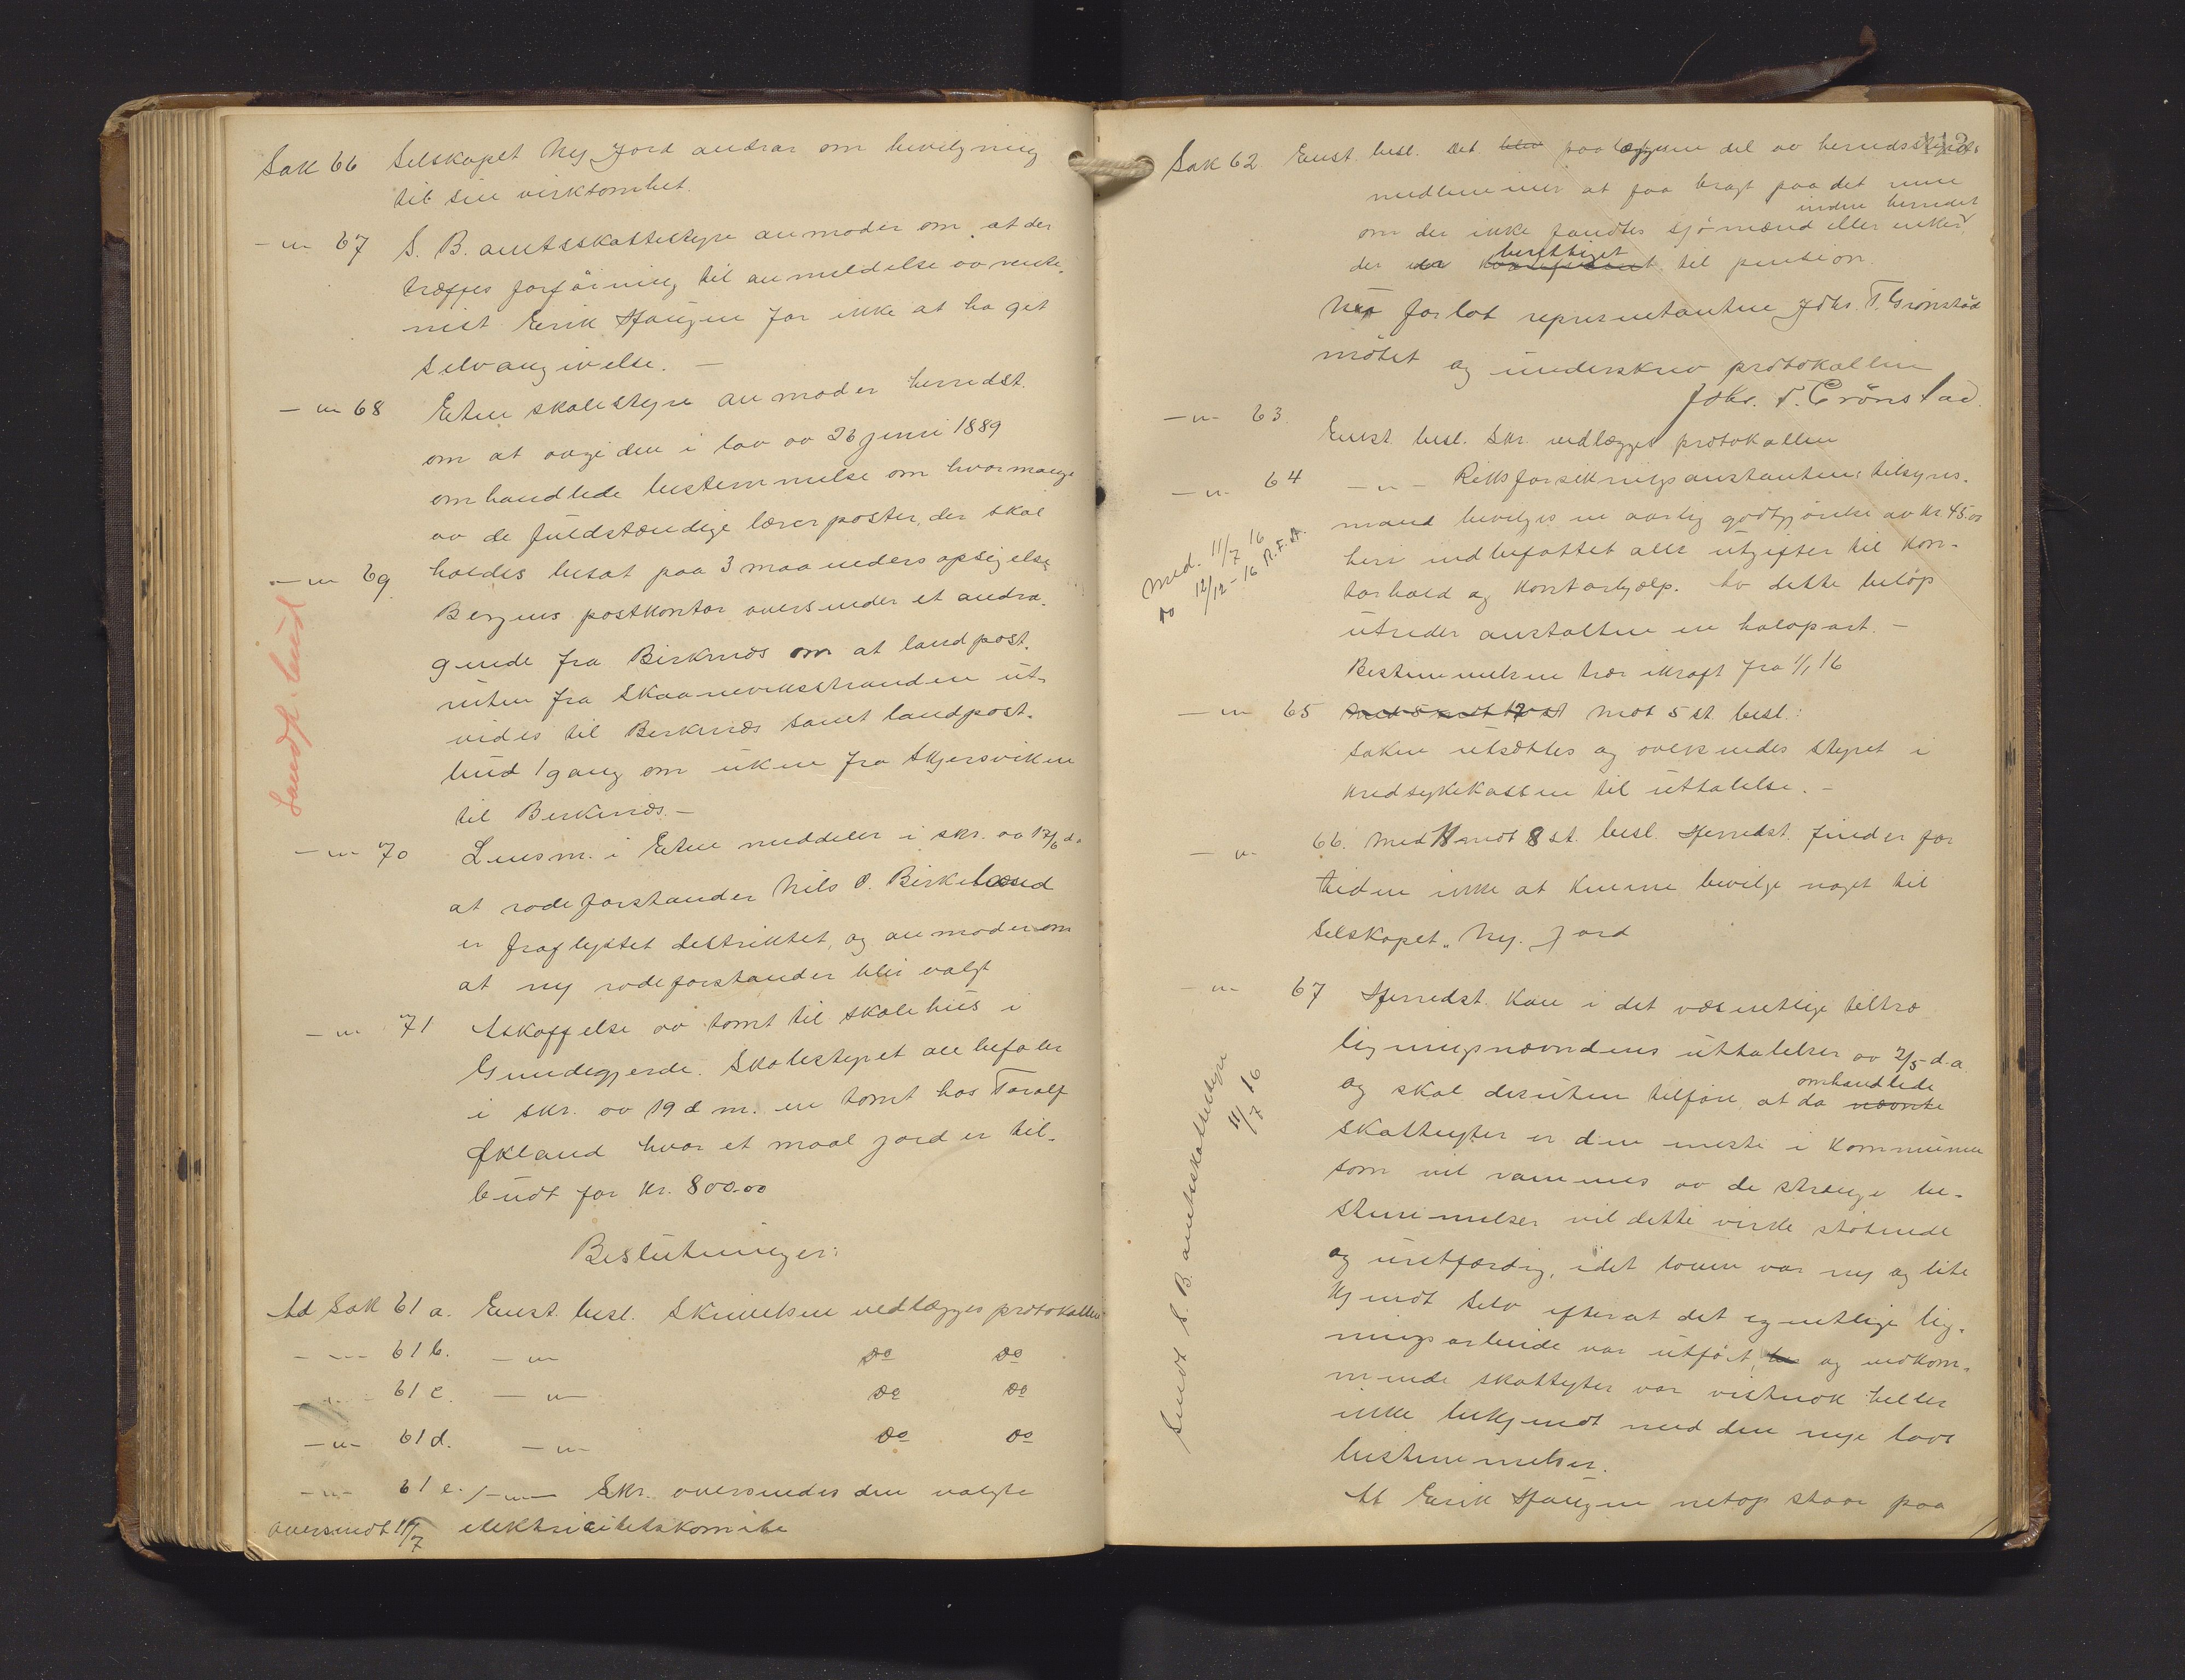 Sak 66 Selskapet Ny Jord andrar om bevilgning
til sin virksomhet.
-"- 67 S. B. amtsskattestyre anmoder om, at der
træffes forföining til anmeldelse av rente-
nist Erik Haugen for ikke at ha git
selvangivelse. -
-"- 68 Etne skolestyre anmoder herredst.
om at avgi den i lov av 26 juni 1889
omhandlede bestemmelse om hvormange
av de fuldstændige lærerposter, der skal
holdes besat paa 3 maaneders opsigelse
-"- 69 Bergens postkontor oversender et andra-
gende fra Birknæs om at landpost-
ruten fra Skaaneviksstranden ut-
vides til Birknæs samt landpost-
bud 1 gang om uken fra Skjersviken
til Birknæs. -
Landp. bud
-"- 70 Lensm. i Etne meddeler i skr. av 17/6 d.a.
at rodeforstander Nils O. Birkeland
er fraflyttet distriktet, og anmoder om
at ny rodeforstander blir valgt
-"- 71 Askaffelse av tomt til skolehus i
Grindegjerde. Skolestyret anbefaler
i skr. av 19 d m. en tomt hos Toralf
Økland hvor et maal jord er til-
budt for kr. 800.00
Beslutninger:
Ad Sak 61 a. Enst. besl. Skrivelsen vedlægges protokollen
-"- 61 b. -"- do do
-"- 61 c. -"- do do
-"- 61 d. -"- do do
-"- 61 e. -"- Skr. oversendes den valgte
oversendt 11/7 elektricitetskomite
112
Sak 62 Enst. besl. Det blev paalagt en del av herredsstyrets
medlemmer at faa bragt paa det rene
inden herredet
om der ikke fandtes sjömænd eller enker
berettiget
der er til pension.
Nu forlot representanten Johs. T. Grönstad
mötet og underskrev protokollen
Johs. T. Grönstad.
-"- 63. Enst. besl. Skr. vedlægges protokollen
-"- 64 -"- Riksforsikringsanstaltens tilsyns-
mand bevilges en aarlig godtgjörelse av kr. 45.00
heri indbefattet alle utgifter til kon-
torhold og kontorhjælp. Av dette belöp
utreder anstalten en halvpart. -
Bestemmelsen trær ikraft fra 1/1 16
Med. 11/7 16
do 12/12 - 16 R. F. A.
-"- 65 Mot 5 st. besl.:
Saken utsættes og oversendes styret i
kredsykekassen til uttalelse. -
-"- 66. Med 11 mot 8 st. besl. Herredst. finder for
tiden ikke at kunne bevilge noget til
Selskapet "Ny Jord
-"- 67 Herredst. kan i det væsentlige tiltræ
ligningsnævndens uttalelser av 2/5 d.a.
omhandlede
og skal desuten tilföie, at da nævnte
skatteyter er den eneste i kommunen
som vil rammes av de strenge be-
stemmelser vil dette virke stötende
og uretfærdig, idet loven var ny og lite
kjendt selv efterat det egentlige lig-
ningsarbeide var utfört, og vedkom-
mende skatteyter var vistnok heller
ikke bekjendt med den nye lovs
bestemmelser.
At Erik Haugen netop staar paa
Sendt S. B. amtsskattestyre
11/7 16